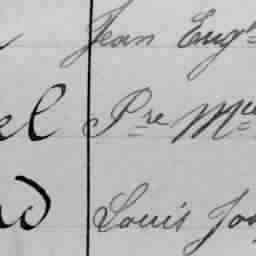 Jean Eug
el Pre Mce
d Louis Jos